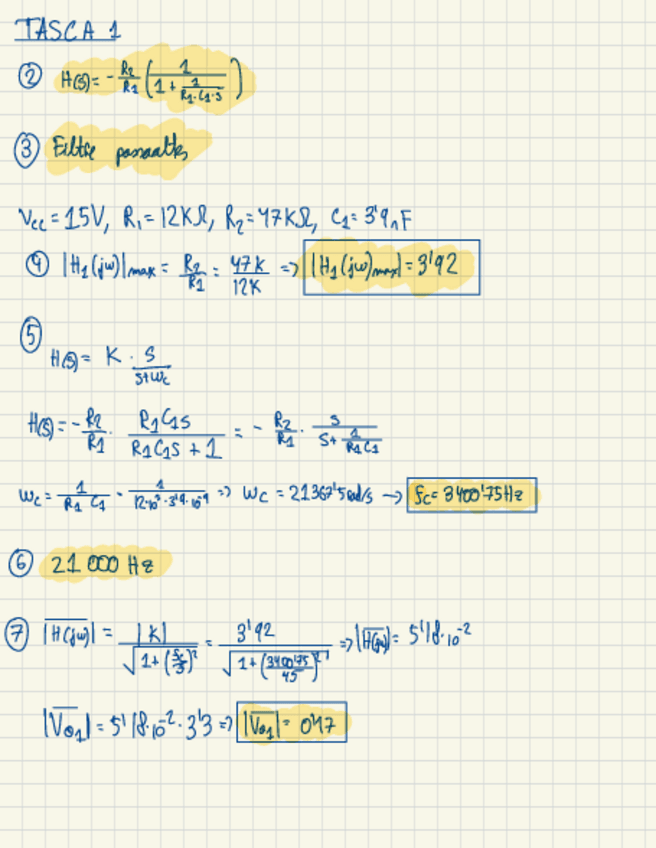 TASCA 1
② H(s) = - R2/R1 ( 1 / (1 + 1/(R1·C1·s)) )
③ Filtre passaalts
Vcc = 15V, R1 = 12KΩ, R2 = 47KΩ, C1 = 3'9nF
④ |H1(jw)|max = R2/R1 = 47K/12K => |H1(jw)max| = 3'92
⑤
H(s) = K · s/(s+wc)
H(s) = - R2/R1 · R1C1s/(R1C1s + 1) = - R2/R1 · s/(s + 1/(R1C1))
wc = 1/(R1 C1) = 1/(12·10³·3'9·10⁻⁹) => wc = 21367'5 rad/s → fc = 3400'75 Hz
⑥ 21 000 Hz
⑦ |H(jw)| = |K| / √(1+(fc/f)²) = 3'92 / √(1+(3400'75/45)²) => |H(jw)| = 5'18·10⁻²
|Vo1| = 5'18·10⁻²·3'3 => |Vo1| = 0'17